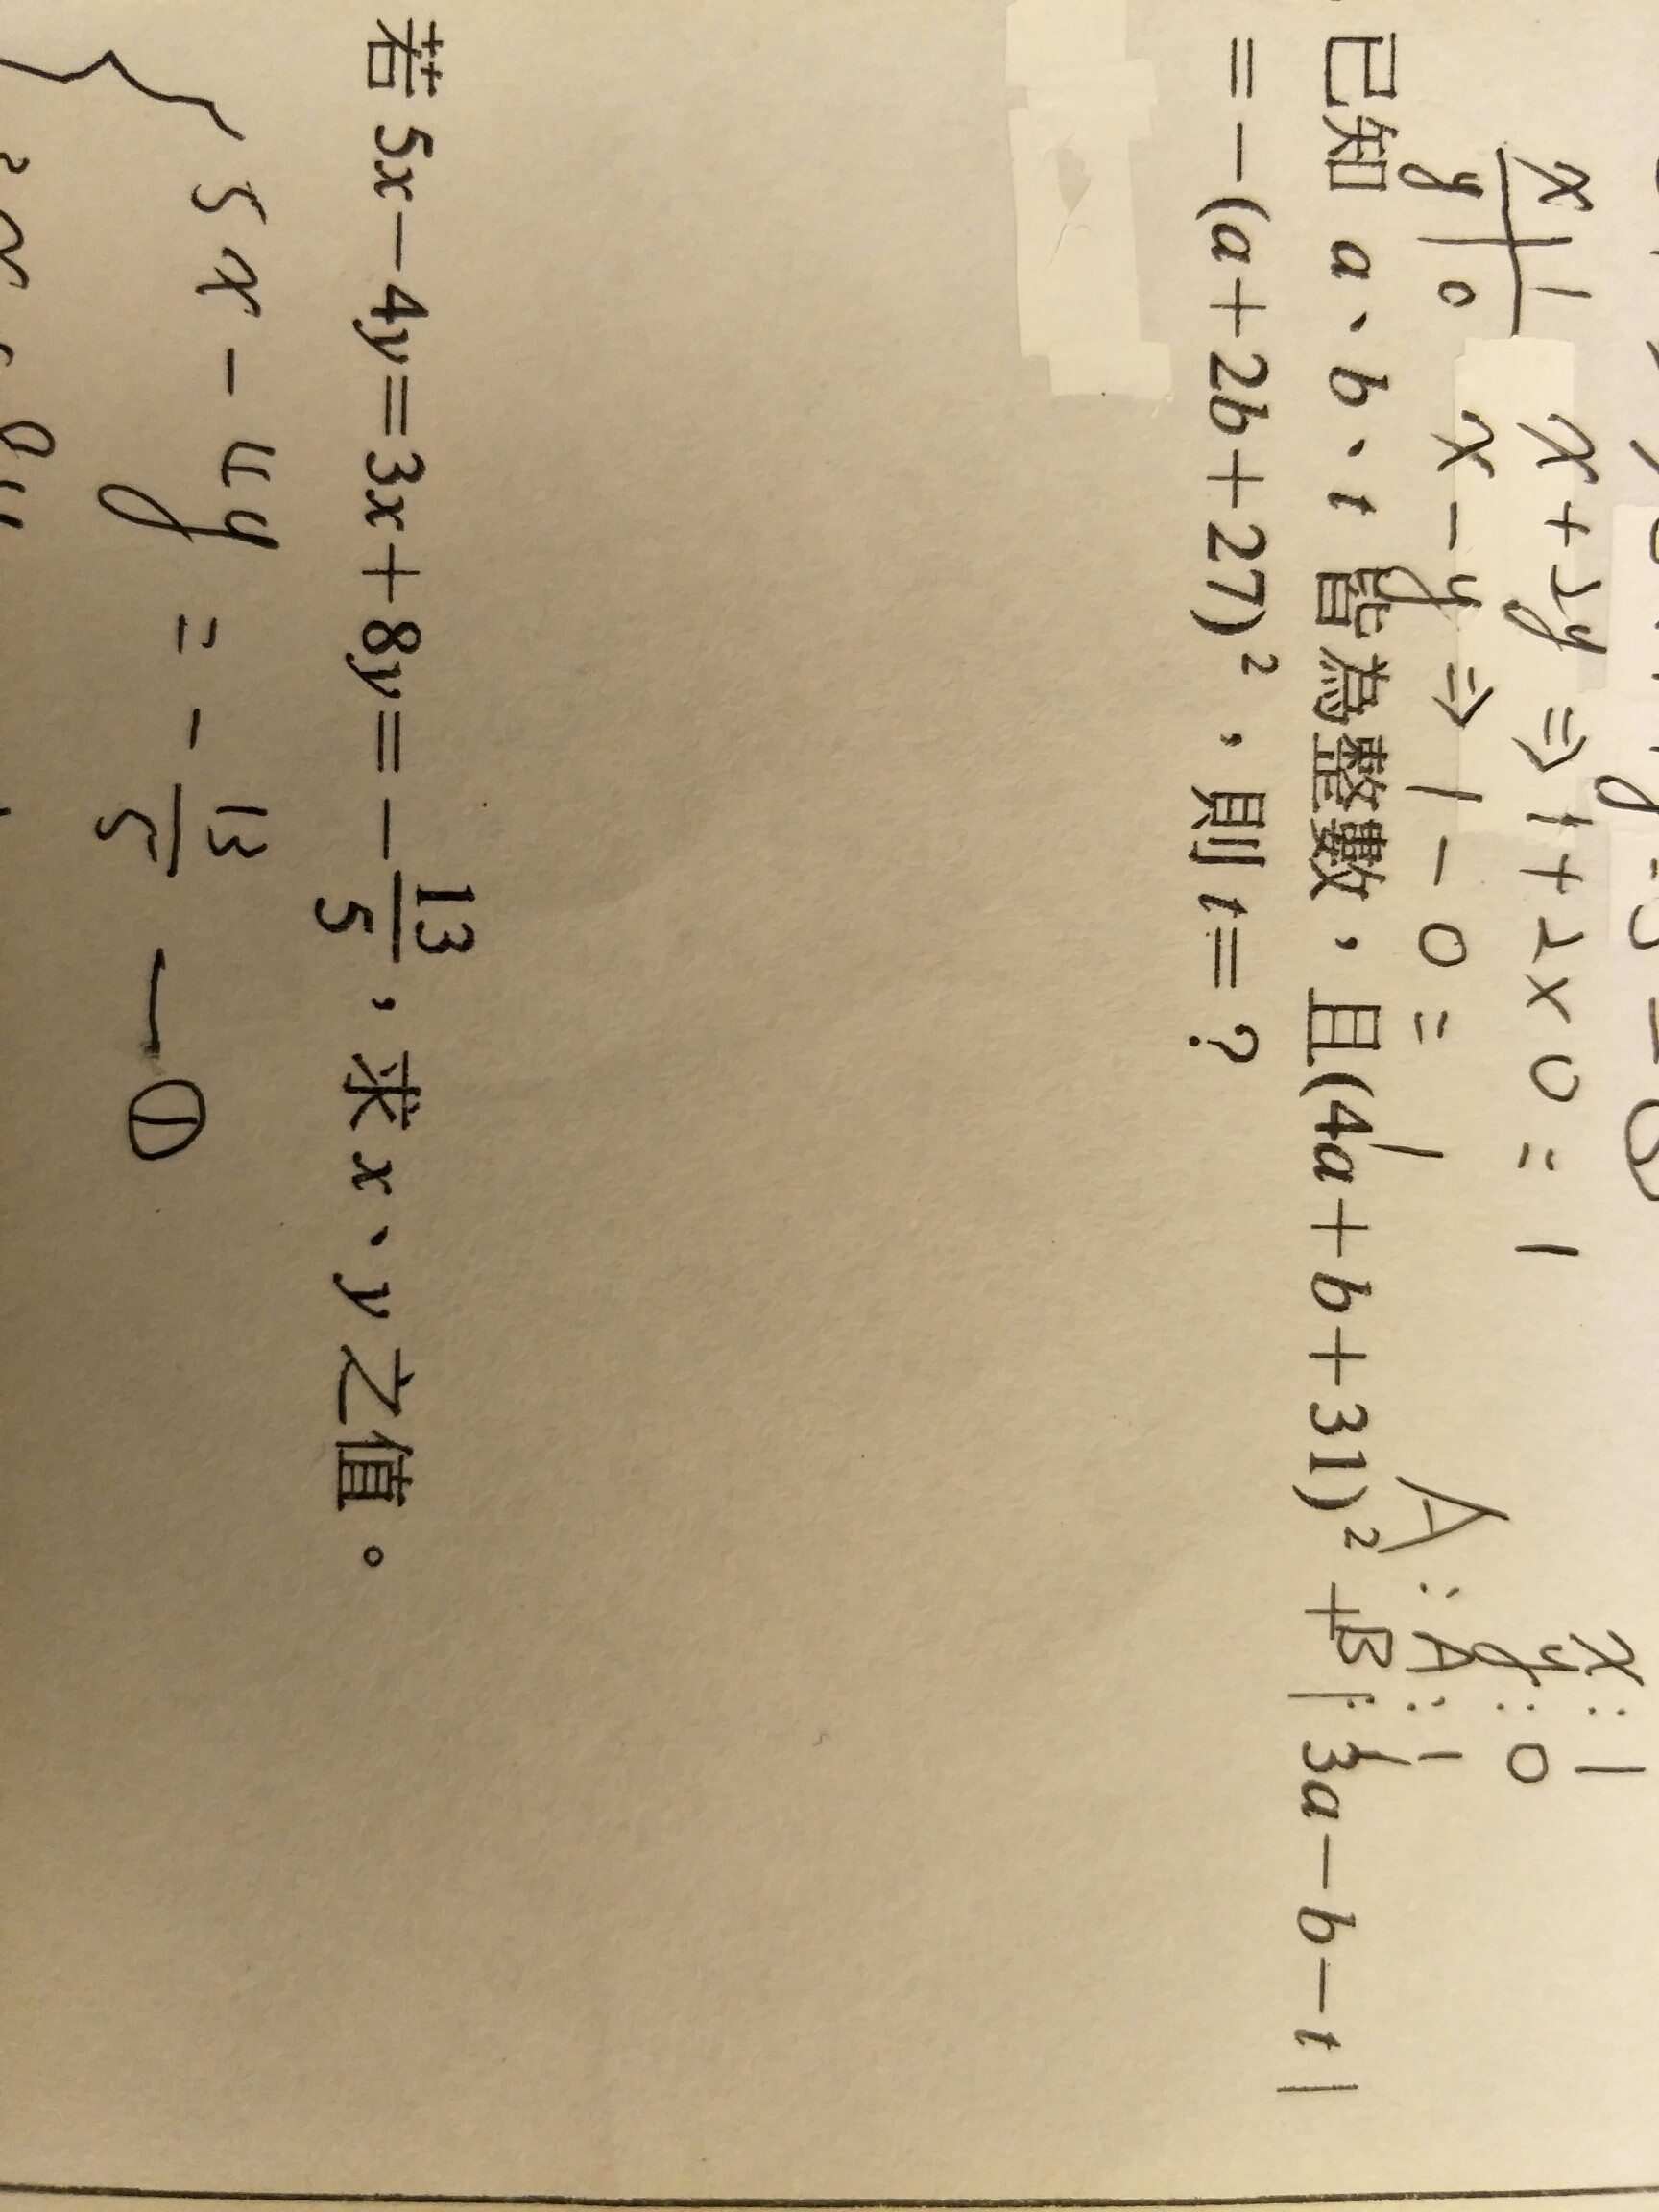 x | 1 x+2y ⇒ 1+2×0=1 x:1
y | 0 x-y ⇒ 1-0=1 y:0
A: A:1
B:1
已知 a、b、t 皆為整數，且(4a+b+31)²+|3a-b-t|
=-(a+2b+27)²，則 t=？
若 5x-4y=3x+8y=-13/5，求 x、y 之值。
{ 5x-4y=-13/5 —①